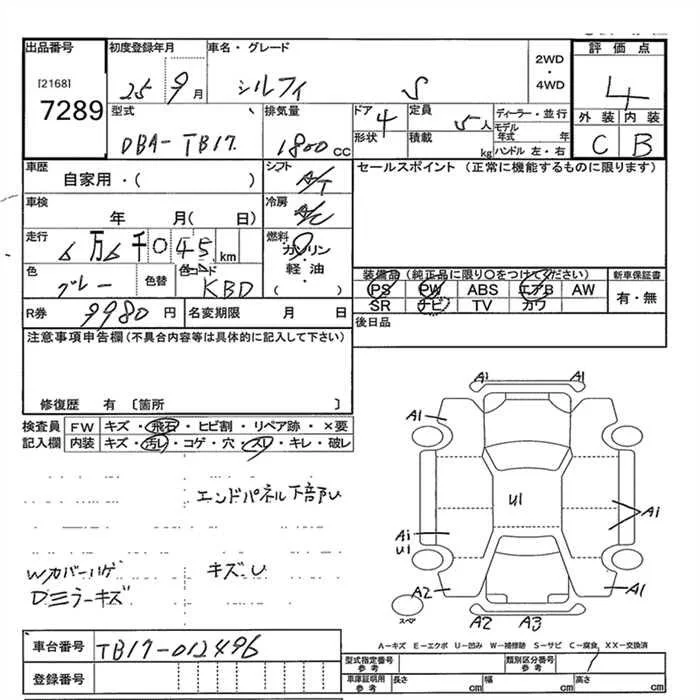 出品番号
[2168]
7289
初度登録年月
25 9月
車名・グレード
シルフィ S
2WD
・
4WD
評価点
4
外装 内装
C B
型式
DBA-TB17
排気量
1800CC
ドア 4
形状
定員
5人
積載
kg
ディーラー・並行
モデル年式 年
ハンドル 左・右
車歴
自家用・( )
シフト
A/T
車検
年 月( 日)
冷房
A/C
走行
6万6千045km
燃料
ガソリン
軽油
( )
色
グレー
色替
色コード
KBD
R券
9980円
名変期限 月 日
セールスポイント (正常に機能するものに限ります)
装備品(純正品に限り○をつけてください)
PS PW ABS エアB AW
SR ナビ TV カワ
新車保証書
有・無
後日品
注意事項申告欄(不具合内容等は具体的に記入して下さい)
修復歴 有 〔箇所 〕
検査員記入欄
FW キズ・飛石・ヒビ割・リペア跡・×要
内装 キズ・汚レ・コゲ・穴・スレ・キレ・破レ
エンドパネル下部U
Wカバーハゲ キズU
Dミラーキズ
A1 A1
A1
U1
A1
A1
U1
A2 A1
スペア
A2 A3
A-キズ E-エクボ U-凹み W-補修跡 S-サビ C-腐食 XX-交換済
車台番号
TB17-012496
登録番号
型式指定番号参考
類別区分番号参考
車庫証明用参考
長さ cm
幅 cm
高さ cm